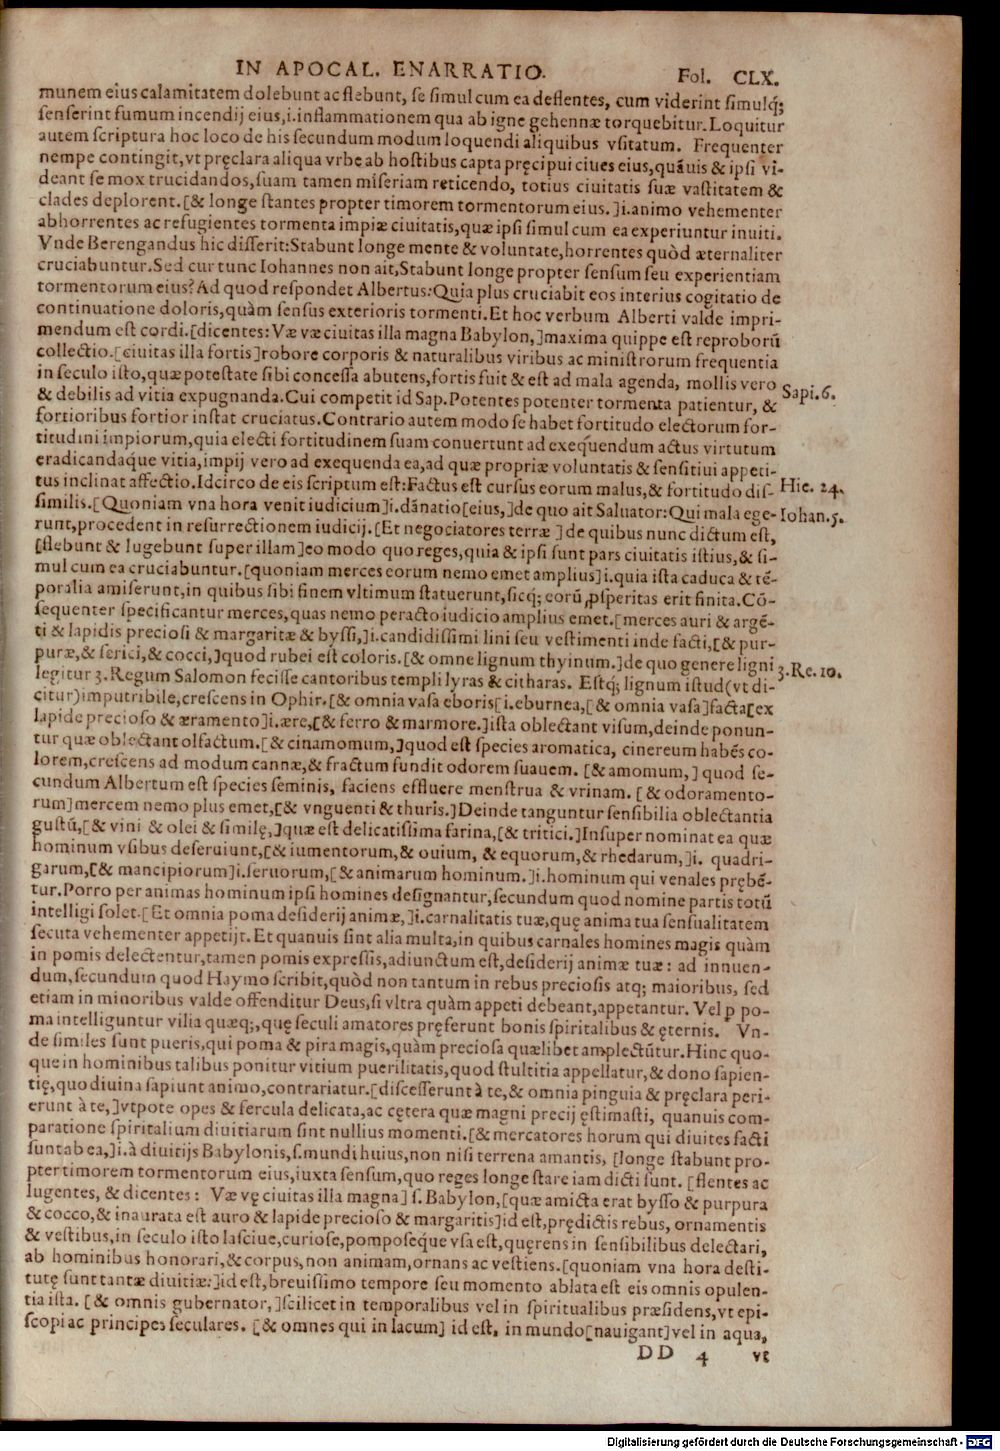 IN APOCAL. ENARRATIO.
Fol. CLX.
munem eius calamitatem dolebunt ac flebunt, se simul cum ea deflentes, cum viderint simulq́;
senserint fumum incendij eius,i.inflammationem qua ab igne gehennæ torquebitur.Loquitur
autem scriptura hoc loco de his secundum modum loquendi aliquibus vsitatum. Frequenter
nempe contingit,vt pręclara aliqua vrbe ab hostibus capta pręcipui ciues eius,quāuis & ipsi vi-
deant se mox trucidandos,suam tamen miseriam reticendo, totius ciuitatis suæ vastitatem &
clades deplorent.[& longe stantes propter timorem tormentorum eius.]i.animo vehementer
abhorrentes ac refugientes tormenta impiæ ciuitatis,quæ ipsi simul cum ea experiuntur inuiti.
Vnde Berengandus hic disserit:Stabunt longe mente & voluntate,horrentes quòd æternaliter
cruciabuntur.Sed cur tunc Iohannes non ait,Stabunt longe propter sensum seu experientiam
tormentorum eius?Ad quod respondet Albertus:Quia plus cruciabit eos interius cogitatio de
continuatione doloris,quàm sensus exterioris tormenti.Et hoc verbum Alberti valde impri-
mendum est cordi.[dicentes: Væ væ ciuitas illa magna Babylon,]maxima quippe est reproborū
collectio.[ciuitas illa fortis]robore corporis & naturalibus viribus ac ministrorum frequentia
in seculo isto,quæ potestate sibi concessa abutens,fortis fuit & est ad mala agenda, mollis vero
& debilis ad vitia expugnanda.Cui competit id Sap.Potentes potenter tormenta patientur, &
Sapi.6.
fortioribus fortior instat cruciatus.Contrario autem modo se habet fortitudo electorum for-
titudini impiorum,quia electi fortitudinem suam conuertunt ad exequendum actus virtutum
eradicandaque vitia,impij vero ad exequenda ea,ad quæ propriæ voluntatis & sensitiui appeti-
tus inclinat affectio.Idcirco de eis scriptum est:Factus est cursus eorum malus,& fortitudo dis-
Hie. 24.
similis.[Quoniam vna hora venit iudicium]i.dānatio[eius,]de quo ait Saluator:Qui mala ege-
Iohan.5.
runt,procedent in resurrectionem iudicij.[Et negociatores terræ ]de quibus nunc dictum est,
[flebunt & lugebunt super illam]eo modo quo reges,quia & ipsi sunt pars ciuitatis istius,& si-
mul cum ea cruciabuntur.[quoniam merces eorum nemo emet amplius]i.quia ista caduca & tē-
poralia amiserunt,in quibus sibi finem vltimum statuerunt,sicq́; eorū ꝓsperitas erit finita.Cō-
sequenter specificantur merces,quas nemo peracto iudicio amplius emet.[merces auri & argē-
ti & lapidis preciosi & margaritæ & byssi,]i.candidissimi lini seu vestimenti inde facti,[& pur-
puræ,& serici,& cocci,]quod rubei est coloris.[& omne lignum thyinum.]de quo genere ligni
3.Re.10.
legitur 3.Regum Salomon fecisse cantoribus templi lyras & citharas. Estq́; lignum istud(vt di-
citur)imputribile,crescens in Ophir.[& omnia vasa eboris[i.eburnea,[& omnia vasa]facta[ex
lapide precioso & æramento]i.ære,[& ferro & marmore.]ista oblectant visum,deinde ponun-
tur quæ oblectant olfactum.[& cinamomum,]quod est species aromatica, cinereum habēs co-
lorem,crescens ad modum cannæ,& fractum fundit odorem suauem. [& amomum,] quod se-
cundum Albertum est species seminis, faciens effluere menstrua & vrinam. [& odoramento-
rum]mercem nemo plus emet,[& vnguenti & thuris.]Deinde tanguntur sensibilia oblectantia
gustū,[& vini & olei & similę,]quæ est delicatissima farina,[& tritici.]Insuper nominat ea quæ
hominum vsibus deseruiunt,[& iumentorum,& ouium, & equorum,& rhedarum,]i. quadri-
garum,[& mancipiorum]i.seruorum,[& animarum hominum.]i.hominum qui venales prębē-
tur.Porro per animas hominum ipsi homines designantur,secundum quod nomine partis totū
intelligi solet.[Et omnia poma desiderij animæ,]i.carnalitatis tuæ,quę anima tua sensualitatem
secuta vehementer appetijt.Et quanuis sint alia multa,in quibus carnales homines magis quàm
in pomis delectentur,tamen pomis expressis,adiunctum est,desiderij animæ tuæ: ad innuen-
dum,secundum quod Haymo scribit,quòd non tantum in rebus preciosis atq; maioribus, sed
etiam in minoribus valde offenditur Deus,si vltra quàm appeti debeant,appetantur. Vel p po-
ma intelliguntur vilia quæq;,quę seculi amatores pręferunt bonis spiritalibus & ęternis. Vn-
de similes sunt pueris,qui poma & pira magis,quàm preciosa quælibet amplectūtur.Hinc quo-
que in hominibus talibus ponitur vitium puerilitatis,quod stultitia appellatur,& dono sapien-
tię,quo diuina sapiunt animo,contrariatur.[discesserunt à te,& omnia pinguia & pręclara peri-
erunt à te,]vtpote opes & fercula delicata,ac cętera quæ magni precij ęstimasti, quanuis com-
paratione spiritalium diuitiarum sint nullius momenti.[& mercatores horum qui diuites facti
sunt ab ea,]i.à diuitijs Babylonis,s.mundi huius,non nisi terrena amantis, [longe stabunt pro-
pter timorem tormentorum eius,iuxta sensum,quo reges longe stare iam dicti sunt. [flentes ac
lugentes, & dicentes: Væ vę ciuitas illa magna] s. Babylon,[quæ amicta erat bysso & purpura
& cocco,& inaurata est auro & lapide precioso & margaritis]id est,prędictis rebus, ornamentis
& vestibus,in seculo isto lasciue,curiose,pomposeque vsa est,quęrens in sensibilibus delectari,
ab hominibus honorari,& corpus,non animam,ornans ac vestiens.[quoniam vna hora desti-
tutę sunt tantæ diuitiæ:]id est,breuissimo tempore seu momento ablata est eis omnis opulen-
tia ista. [& omnis gubernator,]scilicet in temporalibus vel in spiritualibus præsidens,vt epi-
scopi ac principes seculares. [& omnes qui in lacum] id est, in mundo[nauigant]vel in aqua,
DD 4 vt
Digitalisierung gefördert durch die Deutsche Forschungsgemeinschaft - DFG